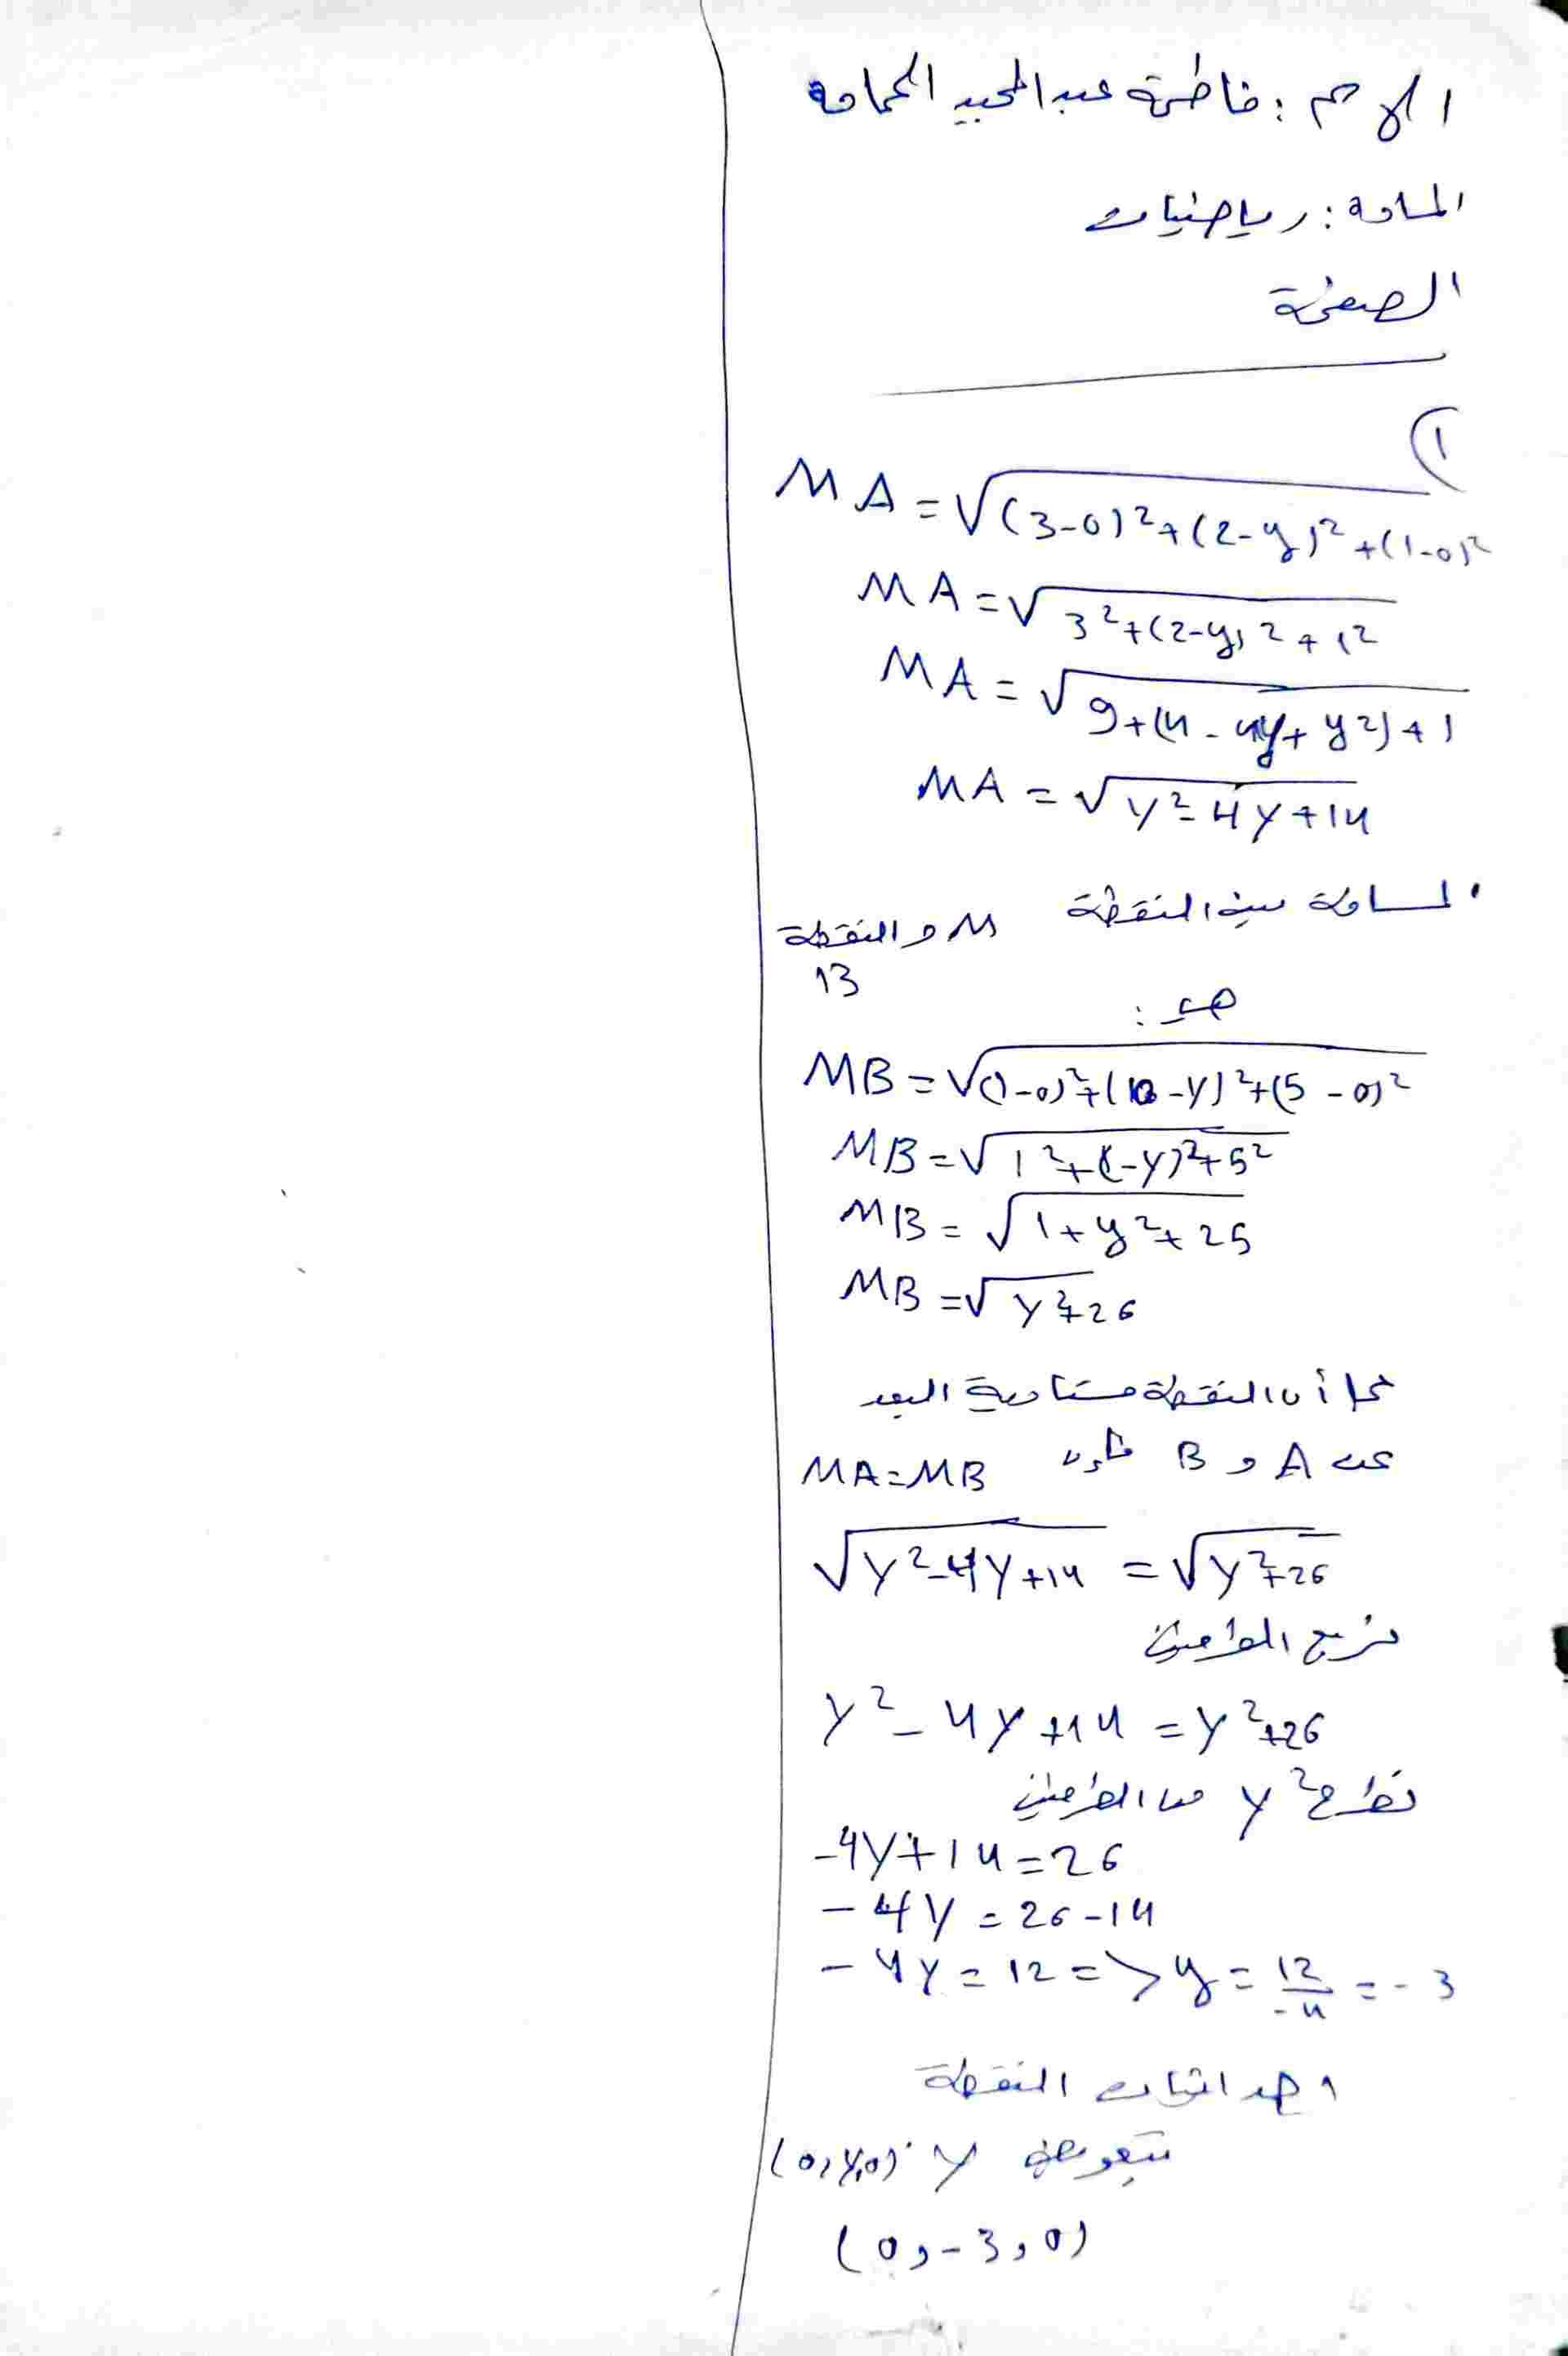 الاسم : فاطمة عبد المجيد الحمامة
المادة : رياضيات
الصفحة
1
MA = √(3-0)²+(2-y)²+(1-0)²
MA = √3²+(2-y)²+1²
MA = √9+(4-4y+y²)+1
MA = √y²-4y+14
المسافة بين النقطة M و النقطة
B
هي :
MB = √(1-0)²+(0-y)²+(5-0)²
MB = √1²+(-y)²+5²
MB = √1+y²+25
MB = √y²+26
بما أن النقطة متساوية البعد
عن A و B فإن MA=MB
√y²-4y+14 = √y²+26
نربع الطرفين
y²-4y+14 = y²+26
نطرح y² من الطرفين
-4y+14=26
-4y = 26-14
-4y = 12 => y = 12/-4 = -3
احداثيات النقطة
بتعويض y (0,y,0)
(0,-3,0)